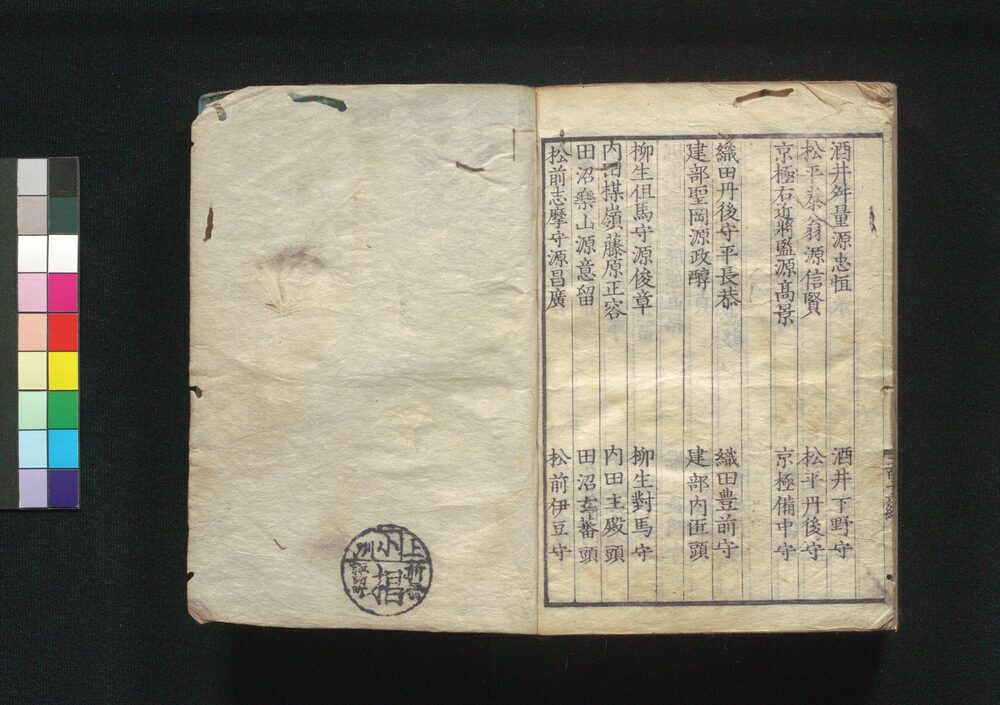 酒井舜量源忠恒
酒井下野守
松平泰翁源信賢
松平丹後守
京極右近將監源髙景
京極備中守
織田丹後守平長恭
織田豊前守
建部聖岡源政醇
建部内匠頭
柳生但馬守源俊章
柳生對馬守
内田棋嶺藤原正容
内田主殿頭
田沼樂山源意留
田沼玄蕃頭
松前志摩守源昌廣
松前伊豆守
上
小